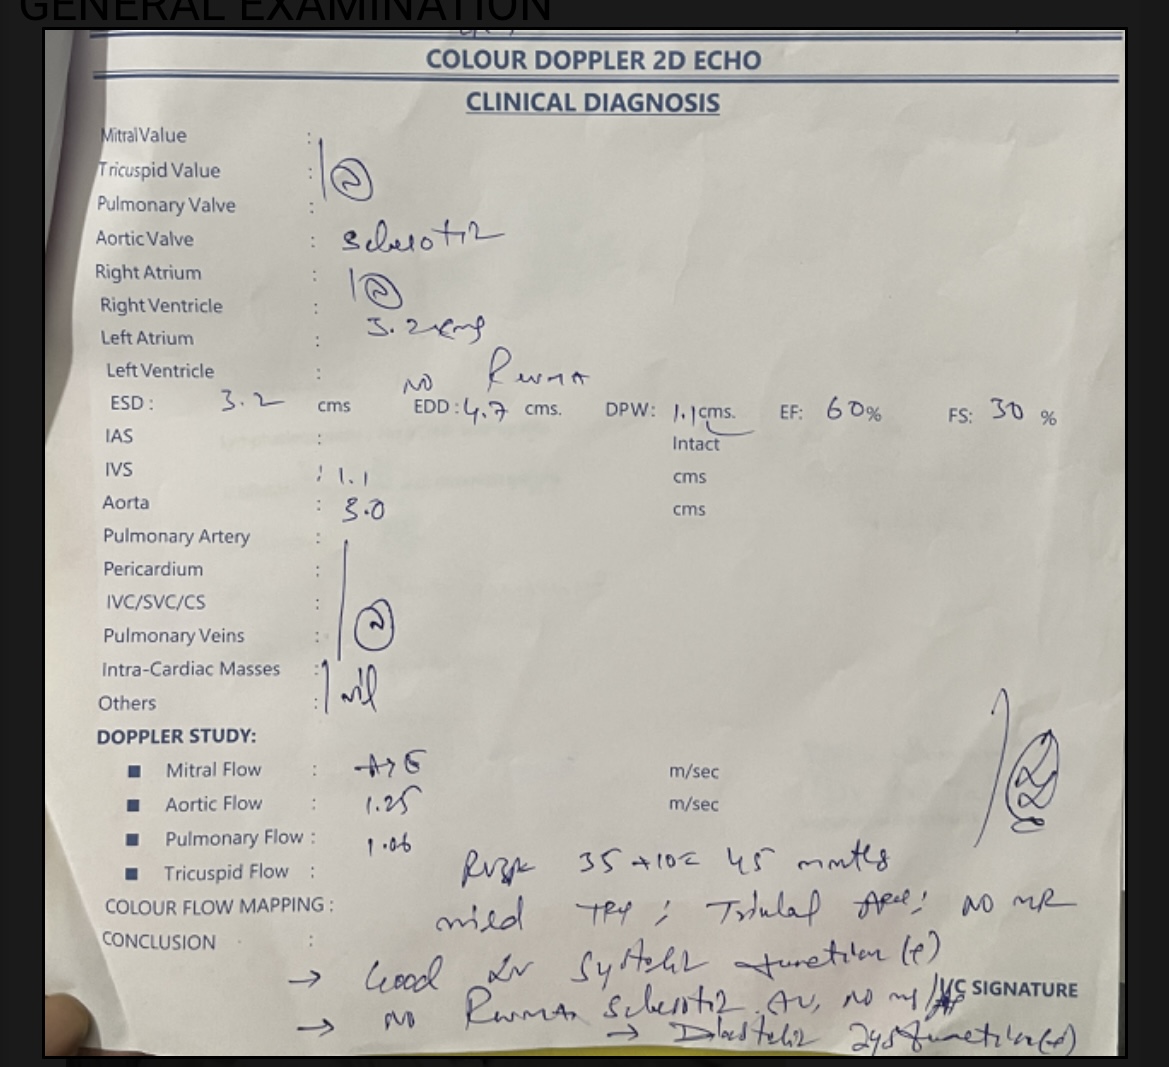 GENERAL EXAMINATION
COLOUR DOPPLER 2D ECHO
CLINICAL DIAGNOSIS
Mitral Value :
Tricuspid Value : N
Pulmonary Valve :
Aortic Valve : Sclerotic
Right Atrium : N
Right Ventricle :
Left Atrium : 3.2 cms
Left Ventricle : NO RWMA
ESD : 3.2 cms EDD : 4.7 cms. DPW: 1.1 cms. EF: 60% FS: 30 %
IAS : Intact
IVS : 1.1 cms
Aorta : 3.0 cms
Pulmonary Artery :
Pericardium :
IVC/SVC/CS :
Pulmonary Veins : N
Intra-Cardiac Masses : nil
Others :
DOPPLER STUDY:
■ Mitral Flow : A>E m/sec
■ Aortic Flow : 1.25 m/sec
■ Pulmonary Flow : 1.06
■ Tricuspid Flow : 35+10= 45 mmHg
COLOUR FLOW MAPPING : mild TR, ; Trivial ; NO MR
CONCLUSION :
→ Good LV Systolic function (+)
VC SIGNATURE
→ NO RWMA, Sclerotic AV, NO
→ Diastolic dysfunction (+)